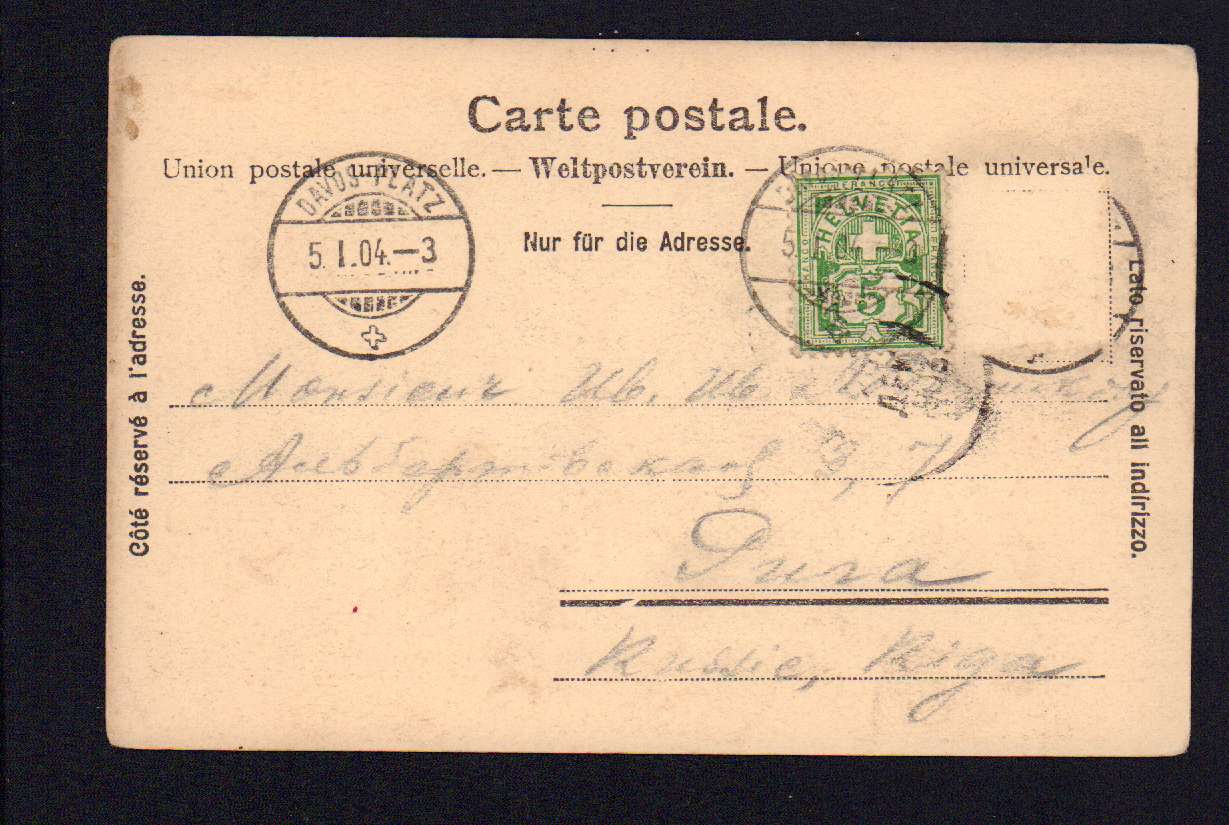 Carte postale.
Union postale universelle. — Weltpostverein. — Unione postale universale.
Nur für die Adresse.
DAVOS-PLATZ
5. I. 04. – 3
FRANCO
HELVETIA
5
Côté réservé à l'adresse.
Lato riservato all indirizzo.
Monsieur
Альбертовская 9, 7
Рига
Russie, Riga